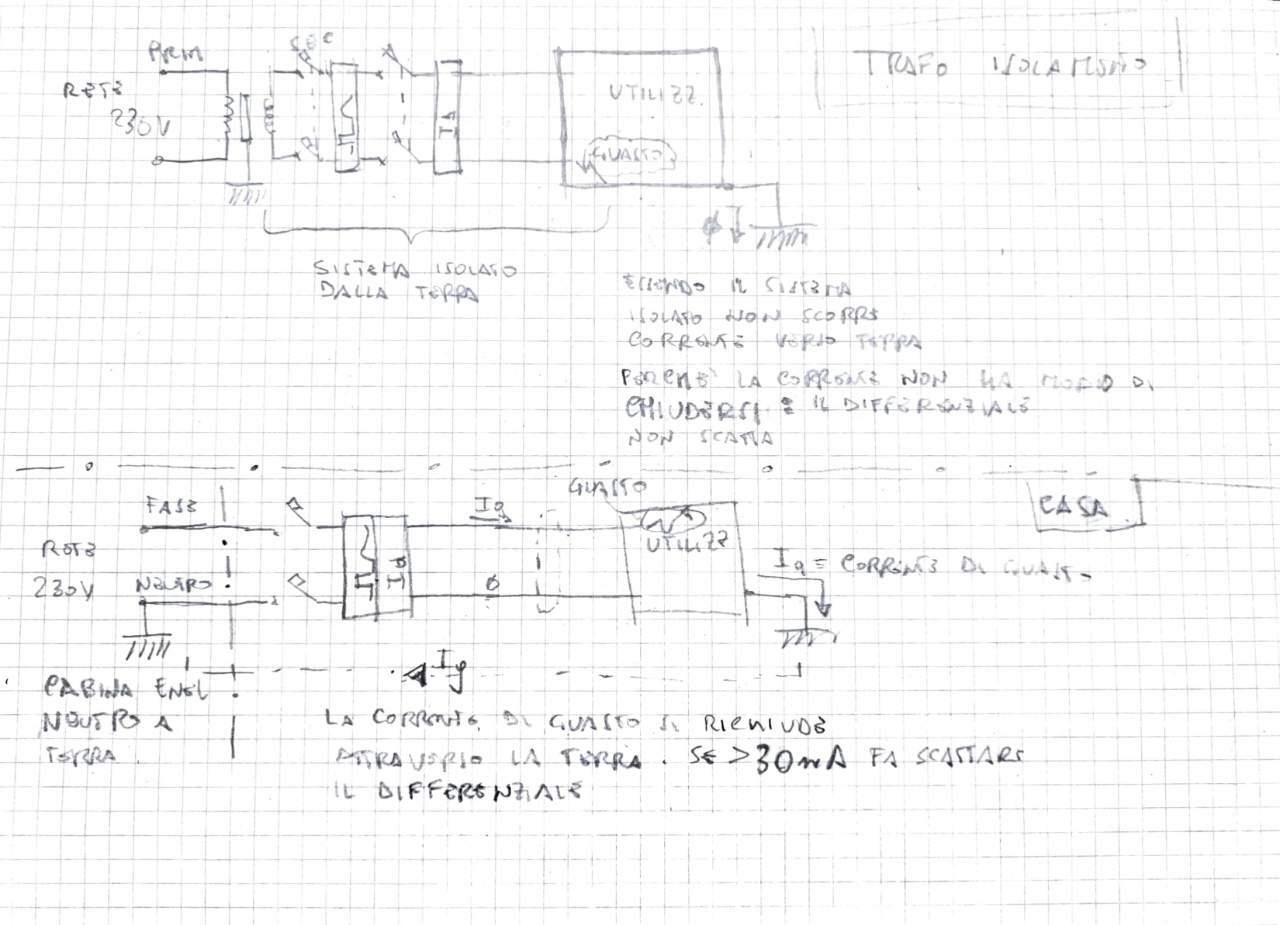 TRAFO ISOLAMENTO
PRIM
SEC
RETE
230V
Id
UTILIZZ.
GUASTO
I
SISTEMA ISOLATO
DALLA TERRA
ESSENDO IL SISTEMA
ISOLATO NON SCORRE
CORRENTE VERSO TERRA
PERCHE' LA CORRENTE NON HA MODO DI
CHIUDERSI E IL DIFFERENZIALE
NON SCATTA
CASA
GUASTO
FASE
Ig
RETE
230V
NEUTRO
Id
UTILIZZ
Ig = CORRENTE DI GUASTO
Ig
CABINA ENEL
NEUTRO A
TERRA.
LA CORRENTE DI GUASTO SI RICHIUDE
ATTRAVERSO LA TERRA. SE >30mA FA SCATTARE
IL DIFFERENZIALE